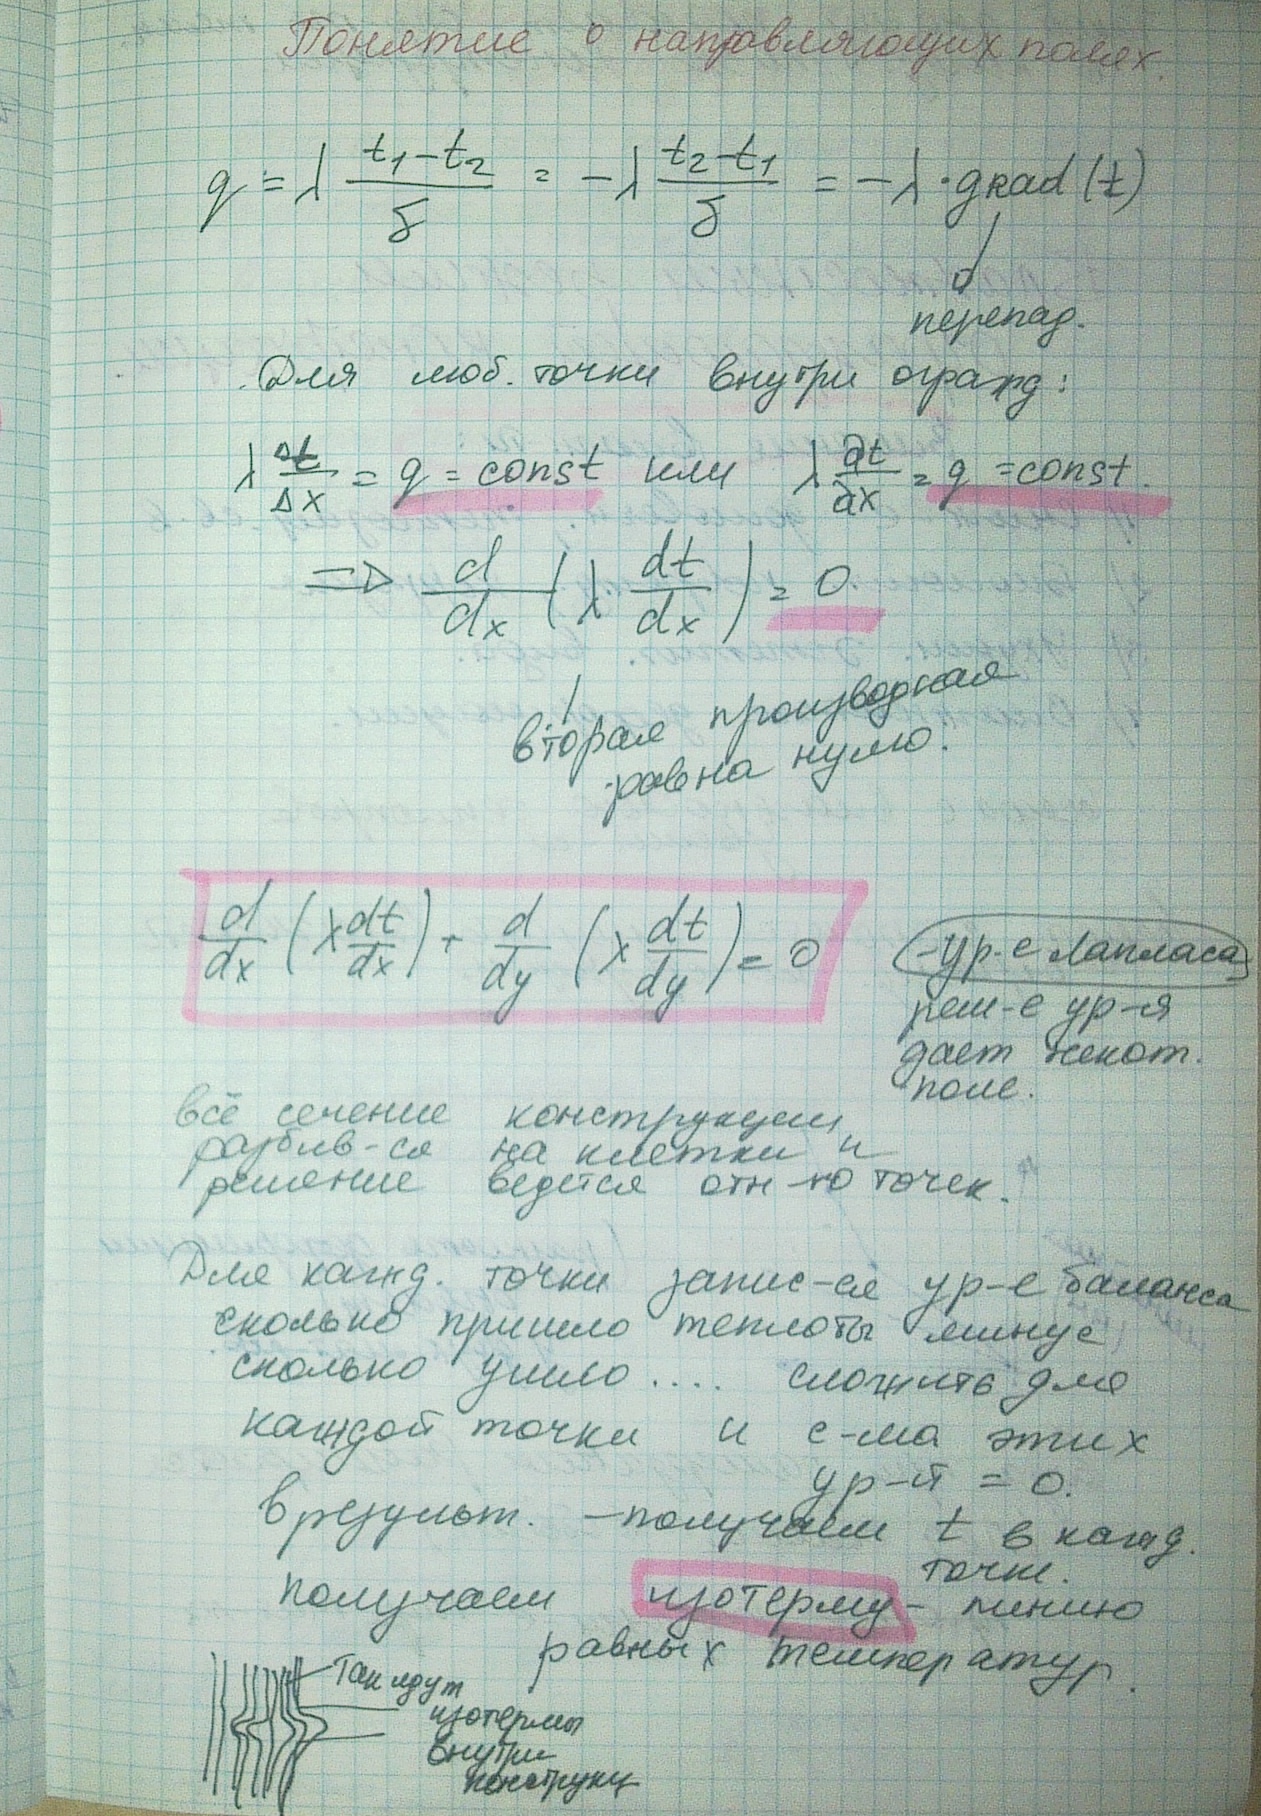 Понятие о направляющих полях.
q = λ (t₁-t₂)/δ = -λ (t₂-t₁)/δ = -λ·grad(t)
перепад.
Для люб. точки внутри огражд:
λ Δt/Δx = q = const или λ ∂t/∂x = q = const.
=> d/dx (λ dt/dx) = 0.
вторая производная
равна нулю.
d/dx (λ dt/dx) + d/dy (λ dt/dy) = 0
-ур-е Лапласа
реш-е ур-я
дает некот.
поле.
всё сечение конструкции
разбив-ся на клетки и
решение ведется отн-но точек.
Для кажд. точки запис-ся ур-е баланса
сколько пришло теплоты минус
сколько ушло .... сложить для
каждой точки и с-ма этих
ур-й = 0.
В результ. - получаем t в кажд.
точке.
получаем изотерму - линию
равных температур.
Так идут
изотермы
внутри
конструкц